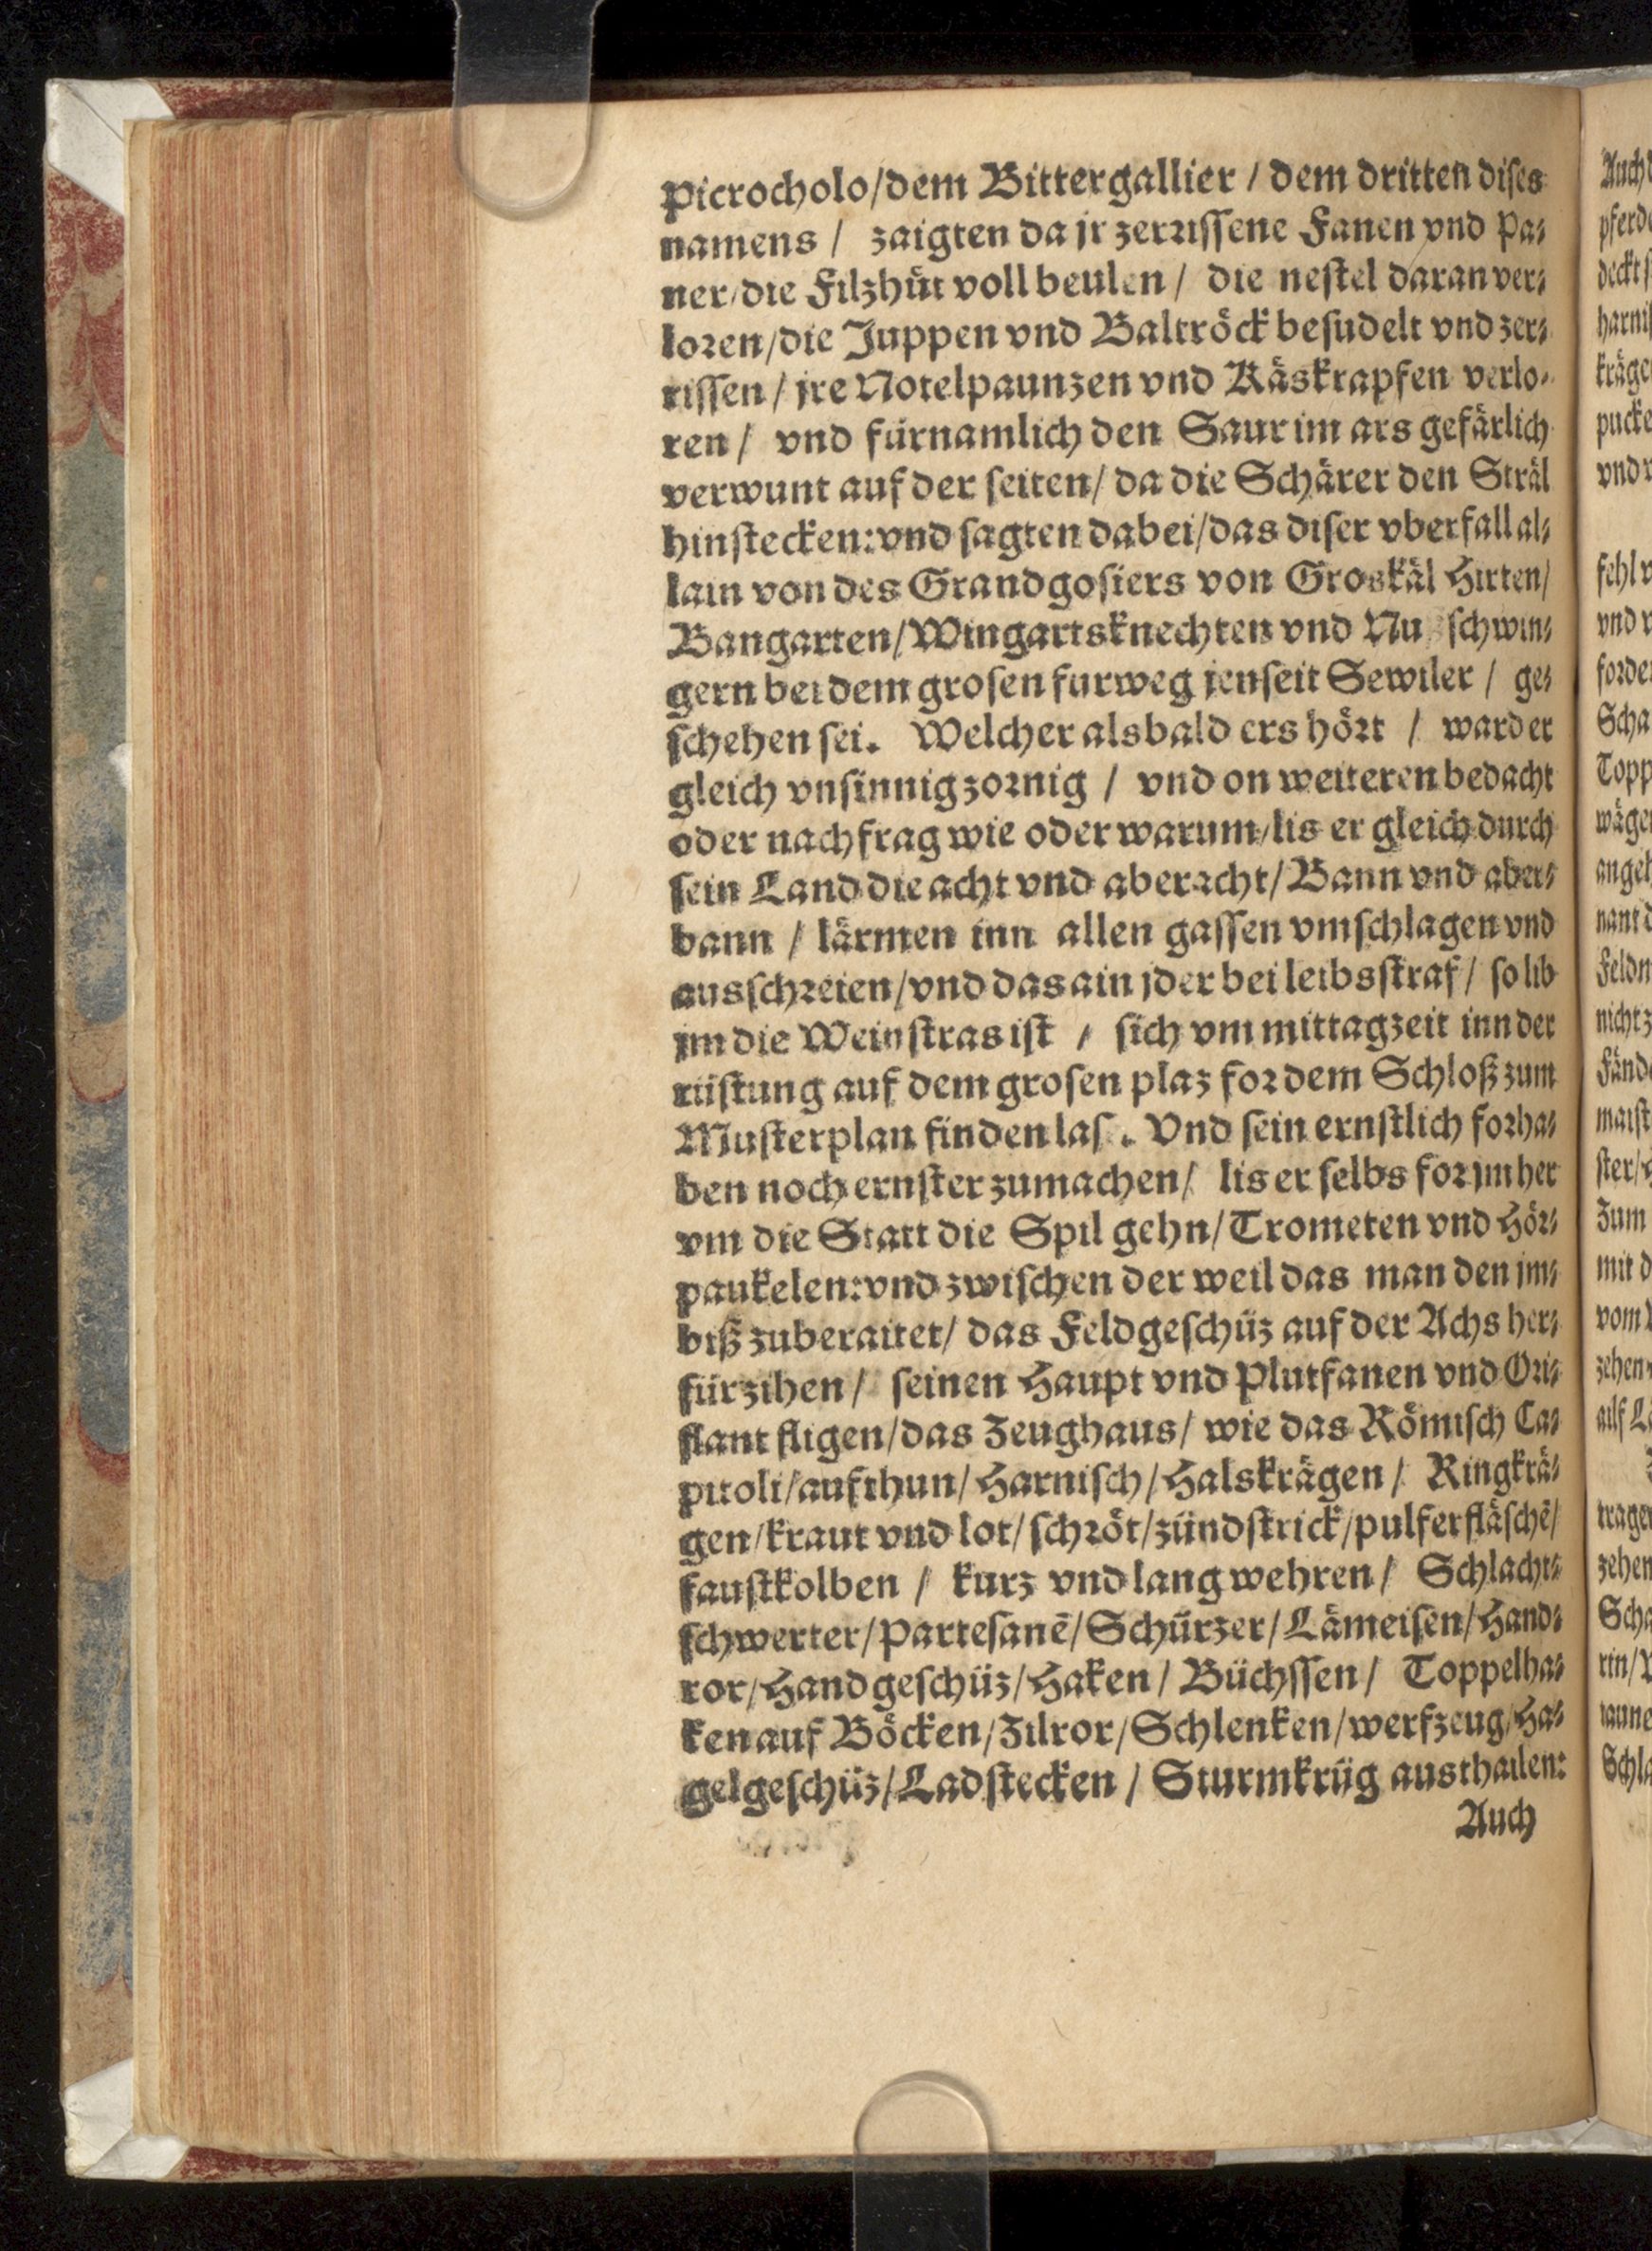 Picrocholo/dem Bittergallier / dem dritten diſes
namens / zaigten da jr zerriſſene Fanen vnd Pa⸗
ner/die Filzhüt voll beulen / die neſtel daran ver⸗
loren/die Juppen vnd Baltröck beſudelt vnd zer⸗
riſſen / jre Notelpaunzen vnd Käskrapfen verlo⸗
ren / vnd fürnamlich den Saur im ars gefärlich
verwunt auf der ſeiten/ da die Schärer den Sträl
hinſtecken: vnd ſagten dabei/das diſer vberfall al⸗
lain von des Grandgoſiers von Groskäl Hirten/
Bangarten/Wingartsknechten vnd Nu ſchwin⸗
gern bei dem groſen furweg jenſeit Sewiler / ge⸗
ſchehen ſei. Welcher alsbald ers hört / ward er
gleich vnſinnig zornig / vnd on weiteren bedacht
oder nachfrag wie oder warum/lis er gleich durch
ſein Land die acht vnd aberacht/Bann vnd aber⸗
bann / lärmen inn allen gaſſen vmſchlagen vnd
ausſchreien/vnd das ain jder bei leibsſtraf/ ſo lib
jm die Weinſtras iſt / ſich vm mittagzeit inn der
rüſtung auf dem groſen plaz for dem Schloß zum
Muſterplan finden laſ. Vnd ſein ernſtlich forha⸗
ben noch ernſter zumachen/ lis er ſelbs for jm her
vm die Statt die Spil gehn/Trometen vnd Hör⸗
paukelen: vnd zwiſchen der weil das man den jm⸗
biß zuberaitet/ das Feldgeſchüz auf der Achs her⸗
fürzihen/ ſeinen Haupt vnd Plutfanen vnd Ori⸗
flant fligen/das Zeughaus/ wie das Römiſch Ca⸗
pitoli/aufthun/Harniſch/Halskrägen/ Ringkrä⸗
gen/kraut vnd lot/ſchröt/zündſtrick/pulferfläſchē/
fauſtkolben / kurz vnd lang wehren/ Schlacht⸗
ſchwerter/Parteſanē/Schürzer/Lämeiſen/Hand⸗
ror/Handgeſchüz/Haken/ Büchſſen/ Toppelha⸗
ken auf Böcken/Zilror/Schlenken/werfzeug/Ha⸗
gelgeſchüz/Ladſtecken / Sturmkrüg austhailen:
Auch